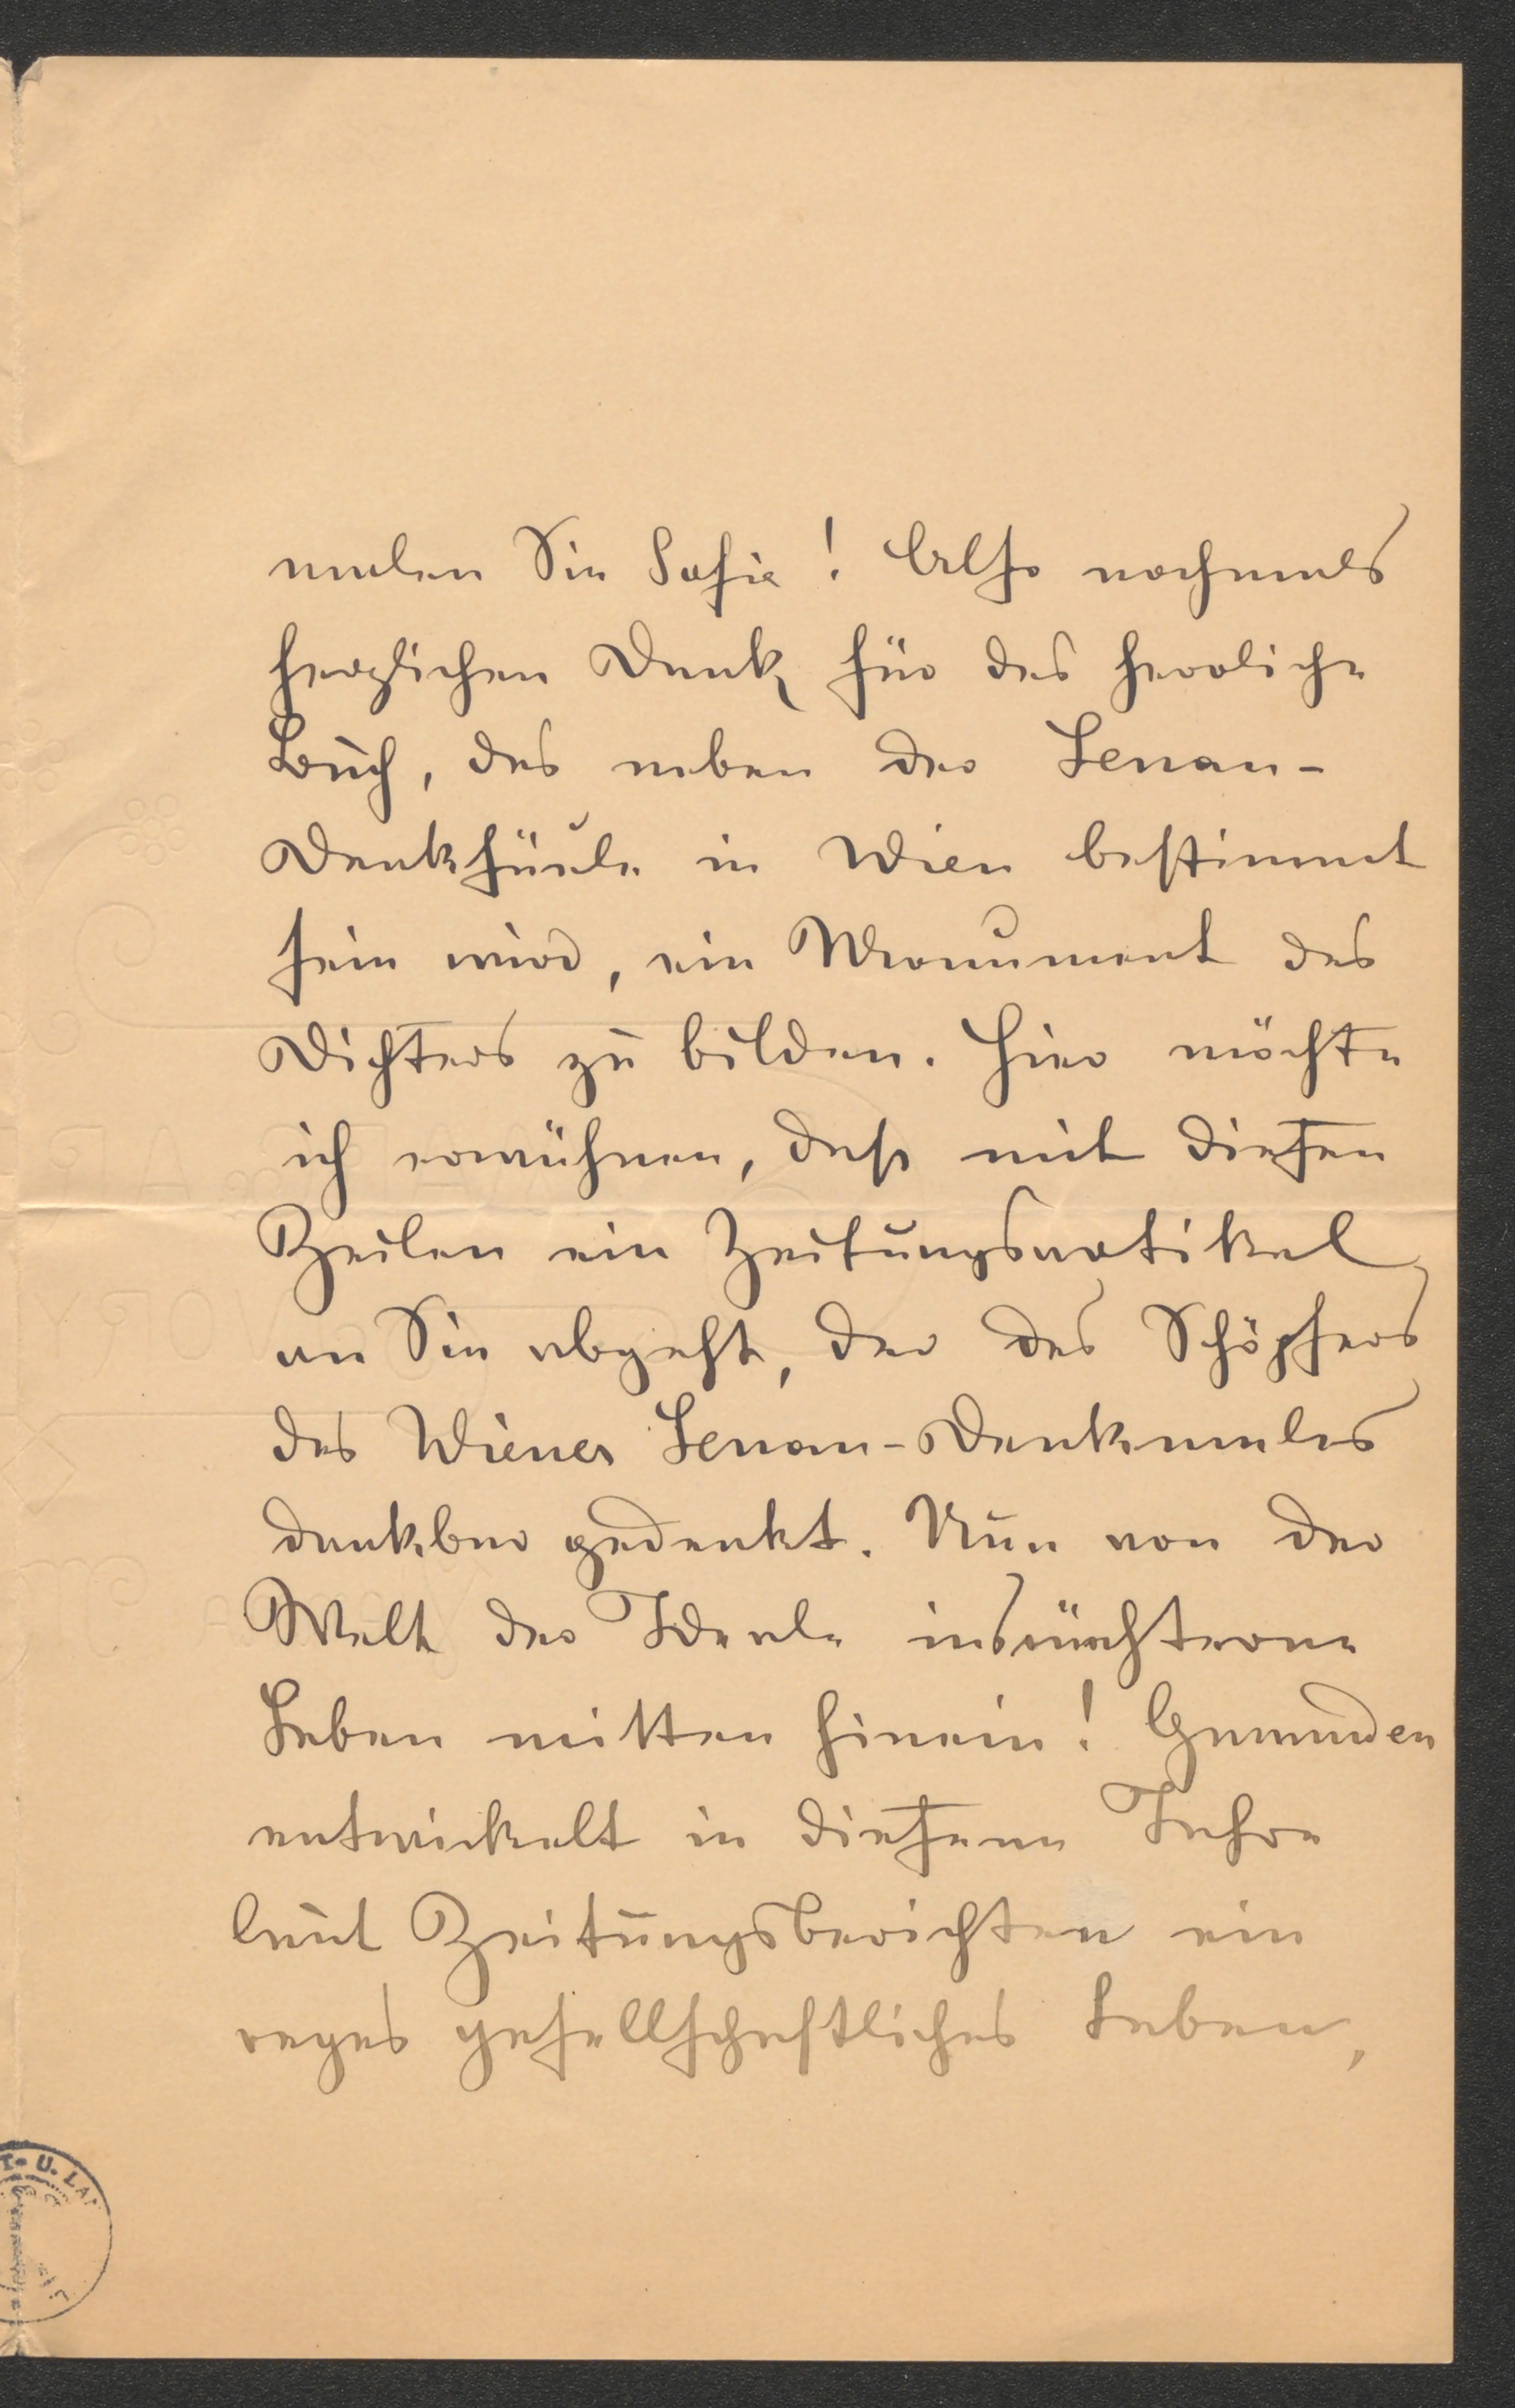 malen Sie Sofie! Also nochmals
herzlichen Dank für das herrliche
Buch, das neben der Lenau-
Denksäule in Wien bestimmt
sein wird, ein Monument des
Dichters zu bilden. Hier möchte
ich erwähnen, dass mit diesen
Zeilen ein Zeitungsartikel
an Sie abgeht, der des Schöpfers
des Wiener Lenau-Denkmales
dankbar gedenkt. Nun von der
Welt der Ideale ins nüchterne
Leben mitten hinein! Gmunden
entwickelt in diesem Jahre
laut Zeitungsberichten ein
reges gesellschaftliches Leben,